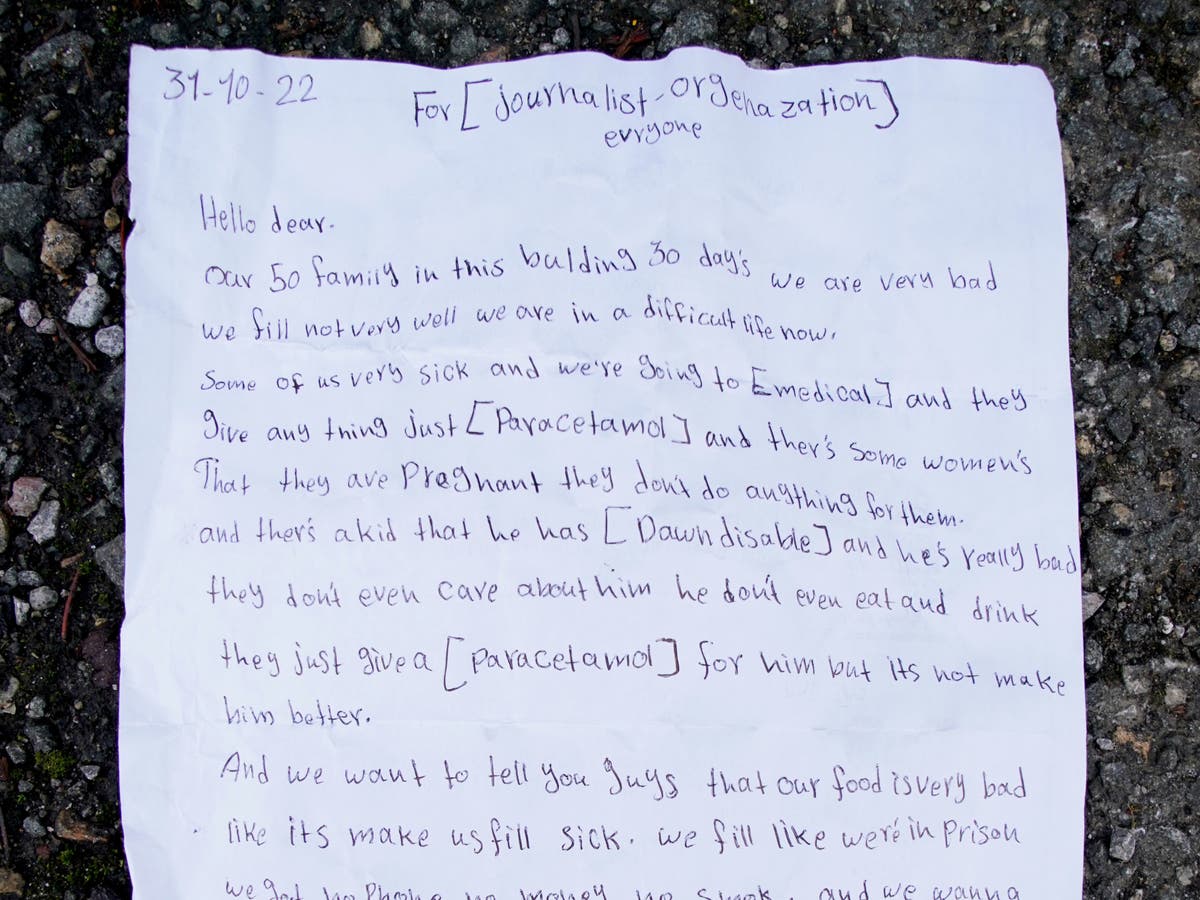 31-10-22
For [journalist-orgenazation]
evryone
Hello dear.
Our 50 family in this bulding 30 day's we are very bad
we fill not very well we are in a difficult life now.
Some of us very sick and we're going to [medical] and they
give any thing just [Paracetamol] and ther's some women's
That they are Pregnant they don't do anything for them.
and ther's a kid that he has [Dawn disable] and he's really bad
they don't even care about him he don't even eat and drink
they just give a [paracetamol] for him but its not make
him better.
And we want to tell you guys that our food is very bad
like its make us fill sick. we fill like were'e in prison
we got no Phone no money no smok, and we wanna